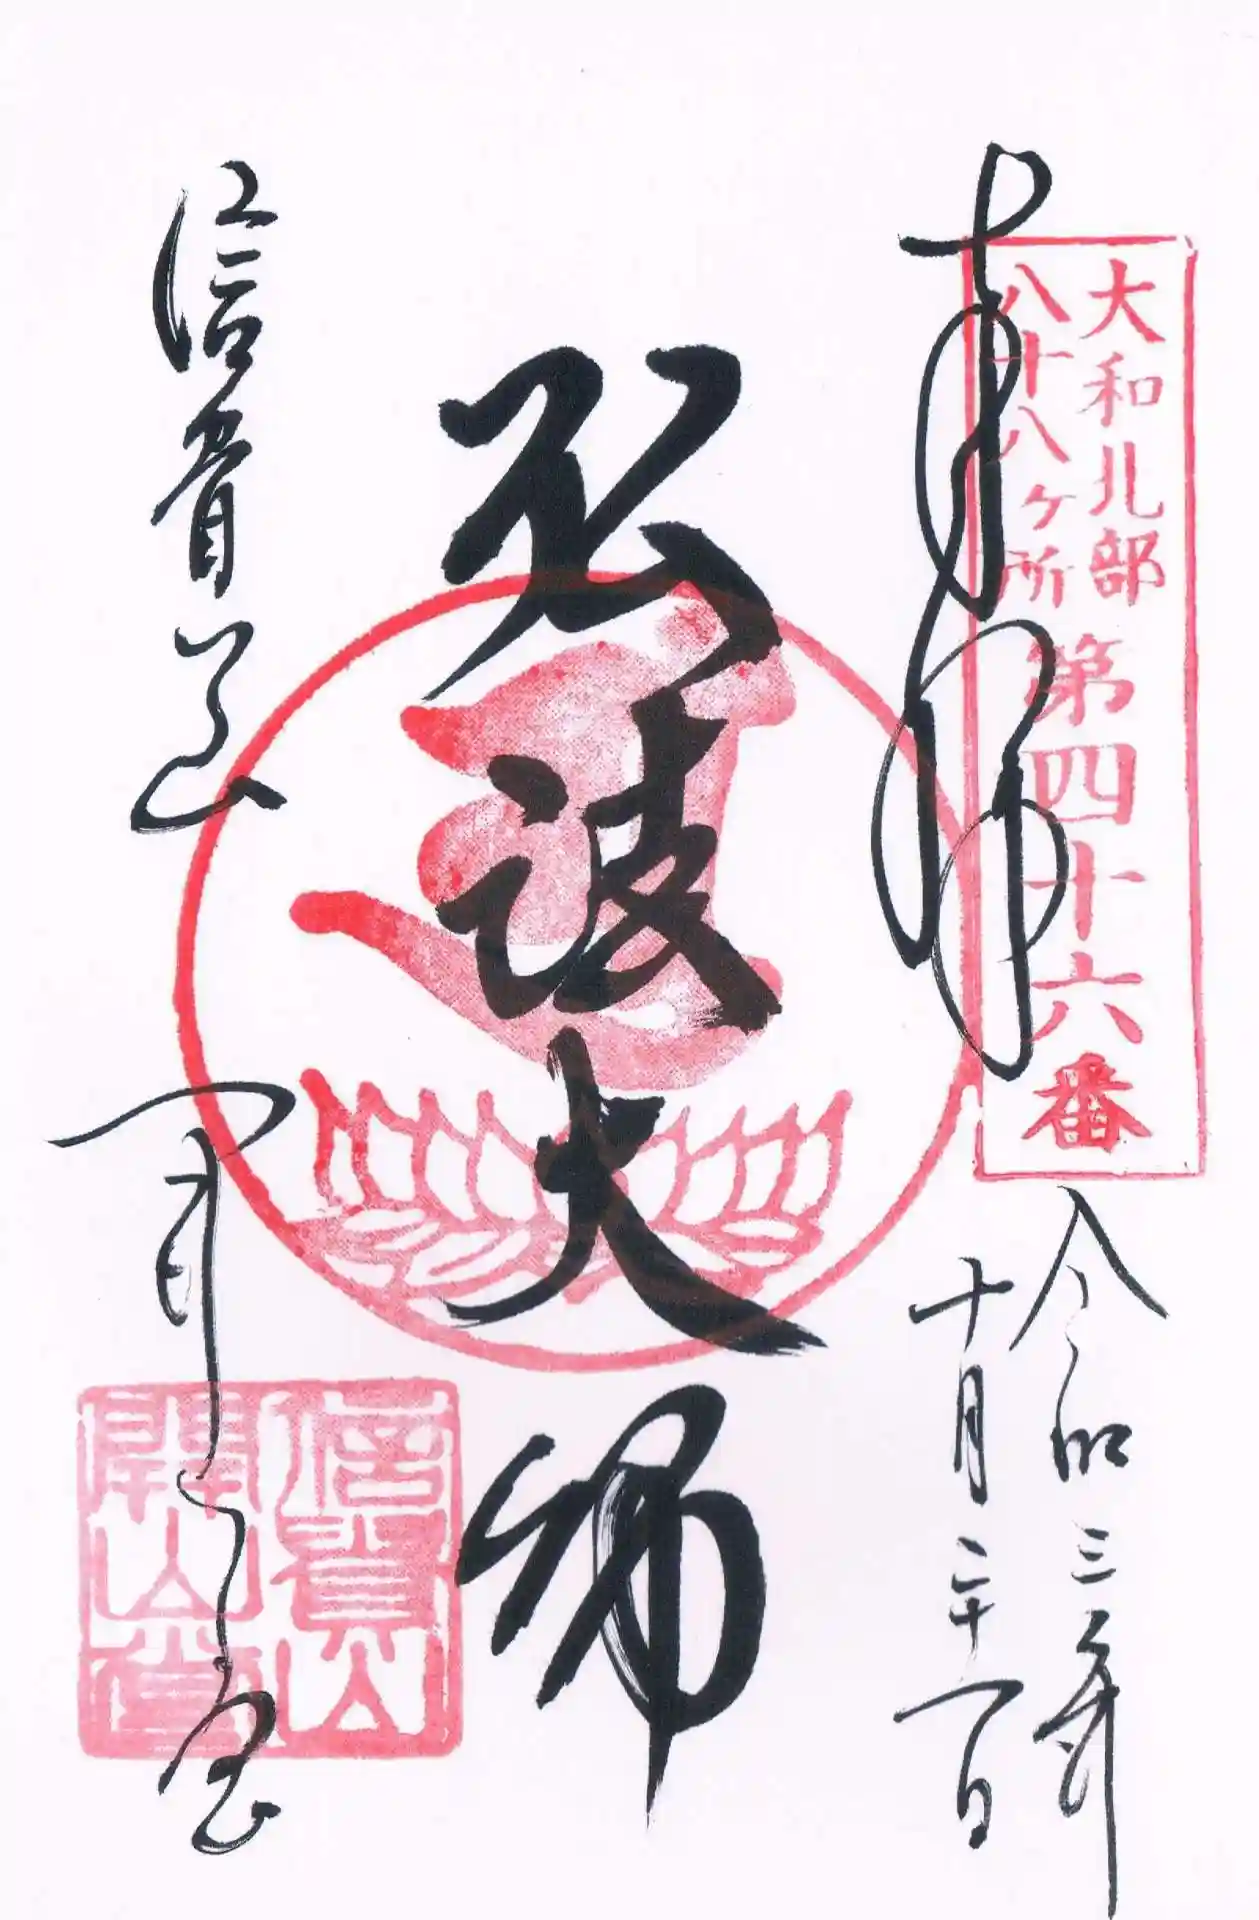 奉拝
大和北部
八十八ヶ所
第四十六番
令和三年
十月二十一日
弘法大師
信貴山
開山堂
信貴山
開山堂